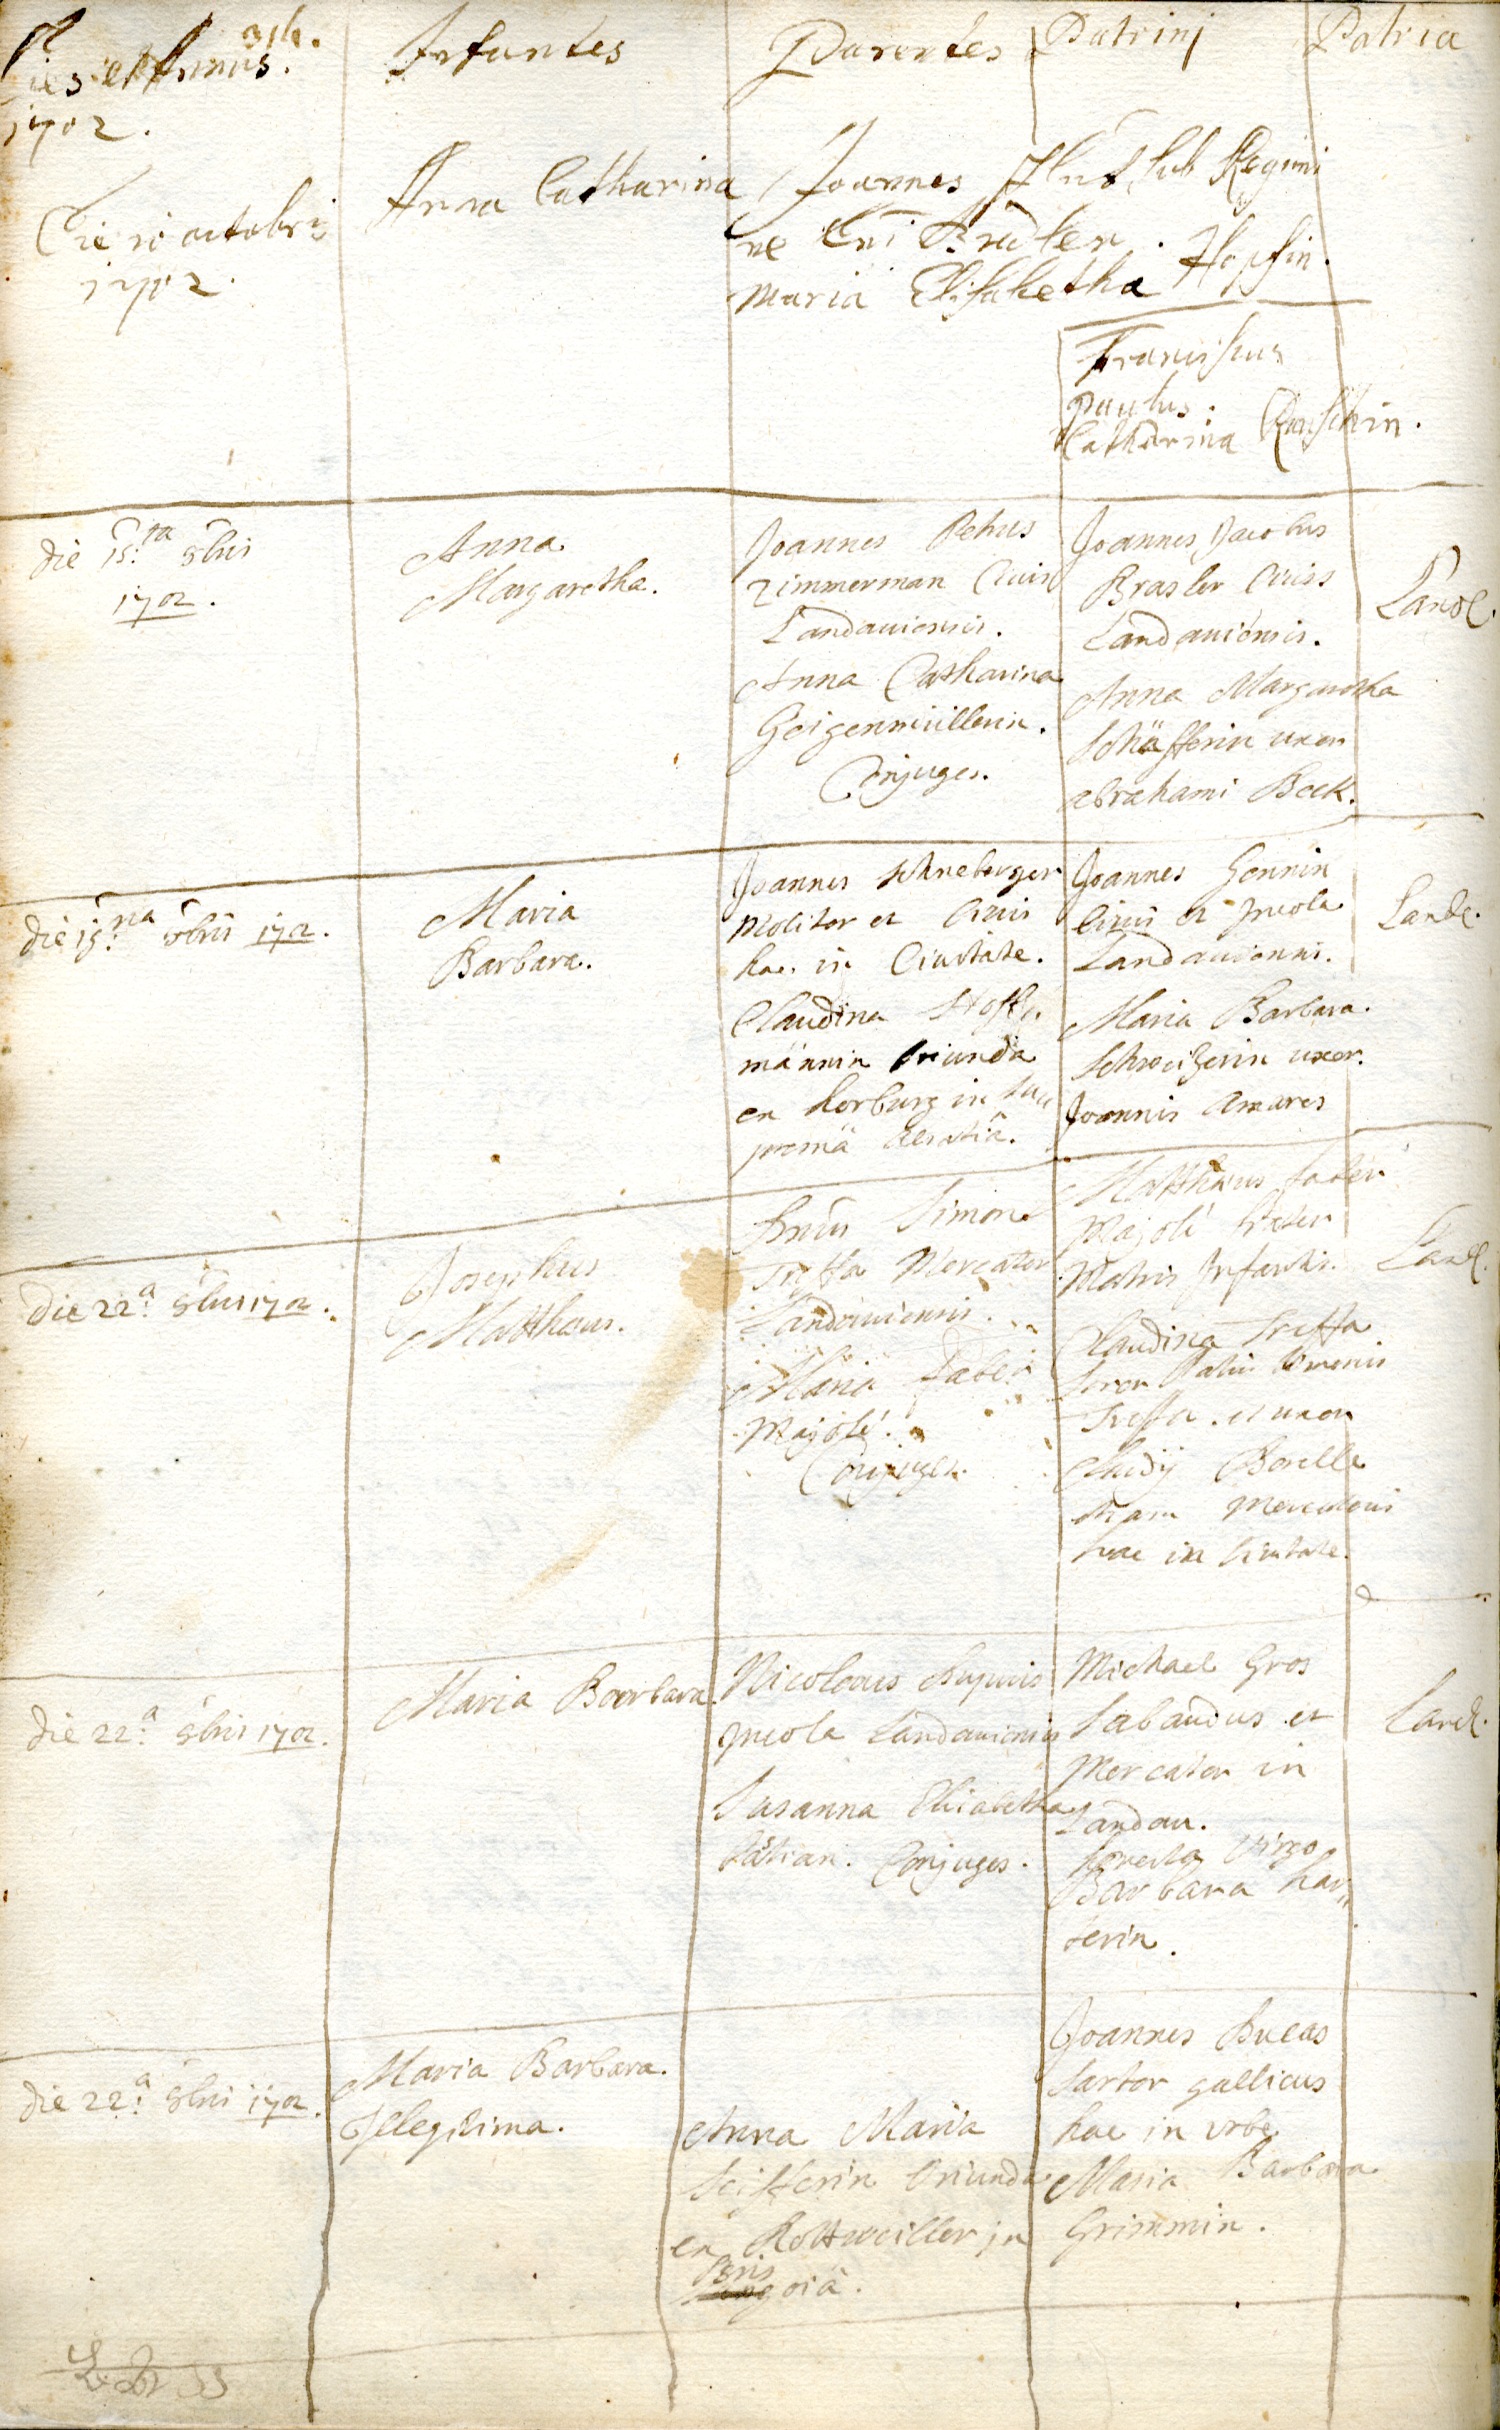 314.
Dies et Annus.
1702.
Infantes
Parentes
Patrinj
Patria
Die 10 octobris
1702.
Anna Catharina
Joannes sub Regimi
ne
Maria Elisabetha Hopfin.
Franciscus
Paulus.
Catharina
die 15.ta 8bris
1702.
Anna
Margaretha.
Joannes Petrus
Zimmerman Civis
Landaviensis.
Anna Catharina
Geigenmüllerin.
Conjuges.
Joannes Jacobus
Brasler Civiss
Landaviensis.
Anna Margaretha
Schäfferin uxor
abrahami Beck.
Land.
die 15.na 8bris 1702.
Maria
Barbara.
Joannes Schneberger
Molitor et Civis
hac in Civitate.
Claudina Hoff
männin Oriunda
ex horburg in su
premä Alsatiâ.
Joannes Gennin
Civis et Incola
Landaviensis.
Maria Barbara
Schweitzerin uxor
Joannis Amares
Land.
die 22.a 8bris 1702.
Josephus
Matthæus.
Simon
Treffa Mercator
Landaviensis.
Maria
Majolé.
Conjuges.
Matthæus
Majolé frater
Matris Infantis.
Claudina Treffa
Soror Simonis
Treffa et uxor
Claudij Borelle
Mercatoris
hac in Civitate.
Land.
die 22.a 8bris 1702.
Maria Baarbara
Nicolaus Dupuis
Incola Landaviensis
Susanna Elisabetha
Conjuges.
Michael Gros
Sabaudus et
Mercator in
Landau.
honesta virgo
Barbara har
terin.
Land.
die 22.a 8bris 1702.
Maria Barbara.
Illegitima.
Anna Maria
Seifferin Oriunda
ex Rottweiller in
Bris
goiâ.
Joannes Ducas
Sartor gallicus
hac in vrbe
Maria Barbara
Grimmin.